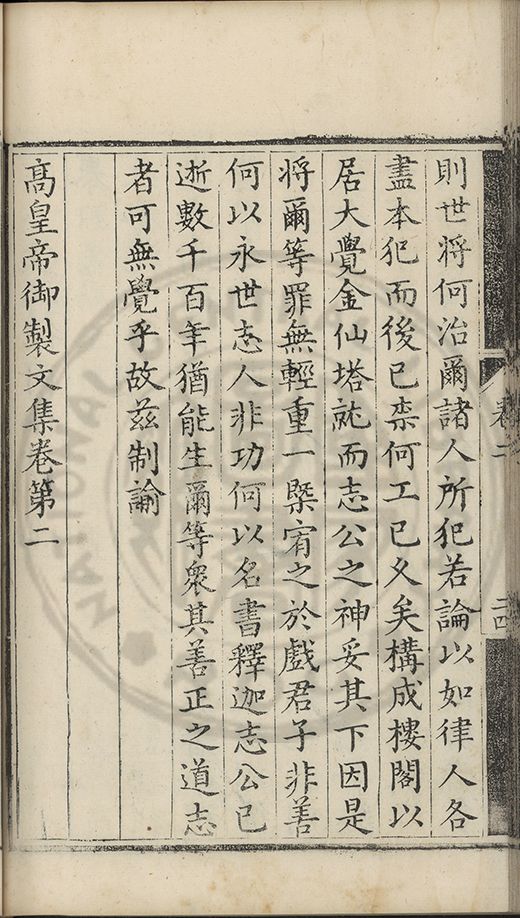 卷二
二四
則世將何治爾諸人所犯若論以如律人各
盡本犯而後已柰何工已久矣構成樓閣以
居大覺金仙塔就而志公之神妥其下因是
將爾等罪無輕重一槩宥之於戲君子非善
何以永世志人非功何以名書釋迦志公已
逝數千百年猶能生爾等衆其善正之道志
者可無覺乎故茲制論
高皇帝御製文集卷第二
NATIONAL